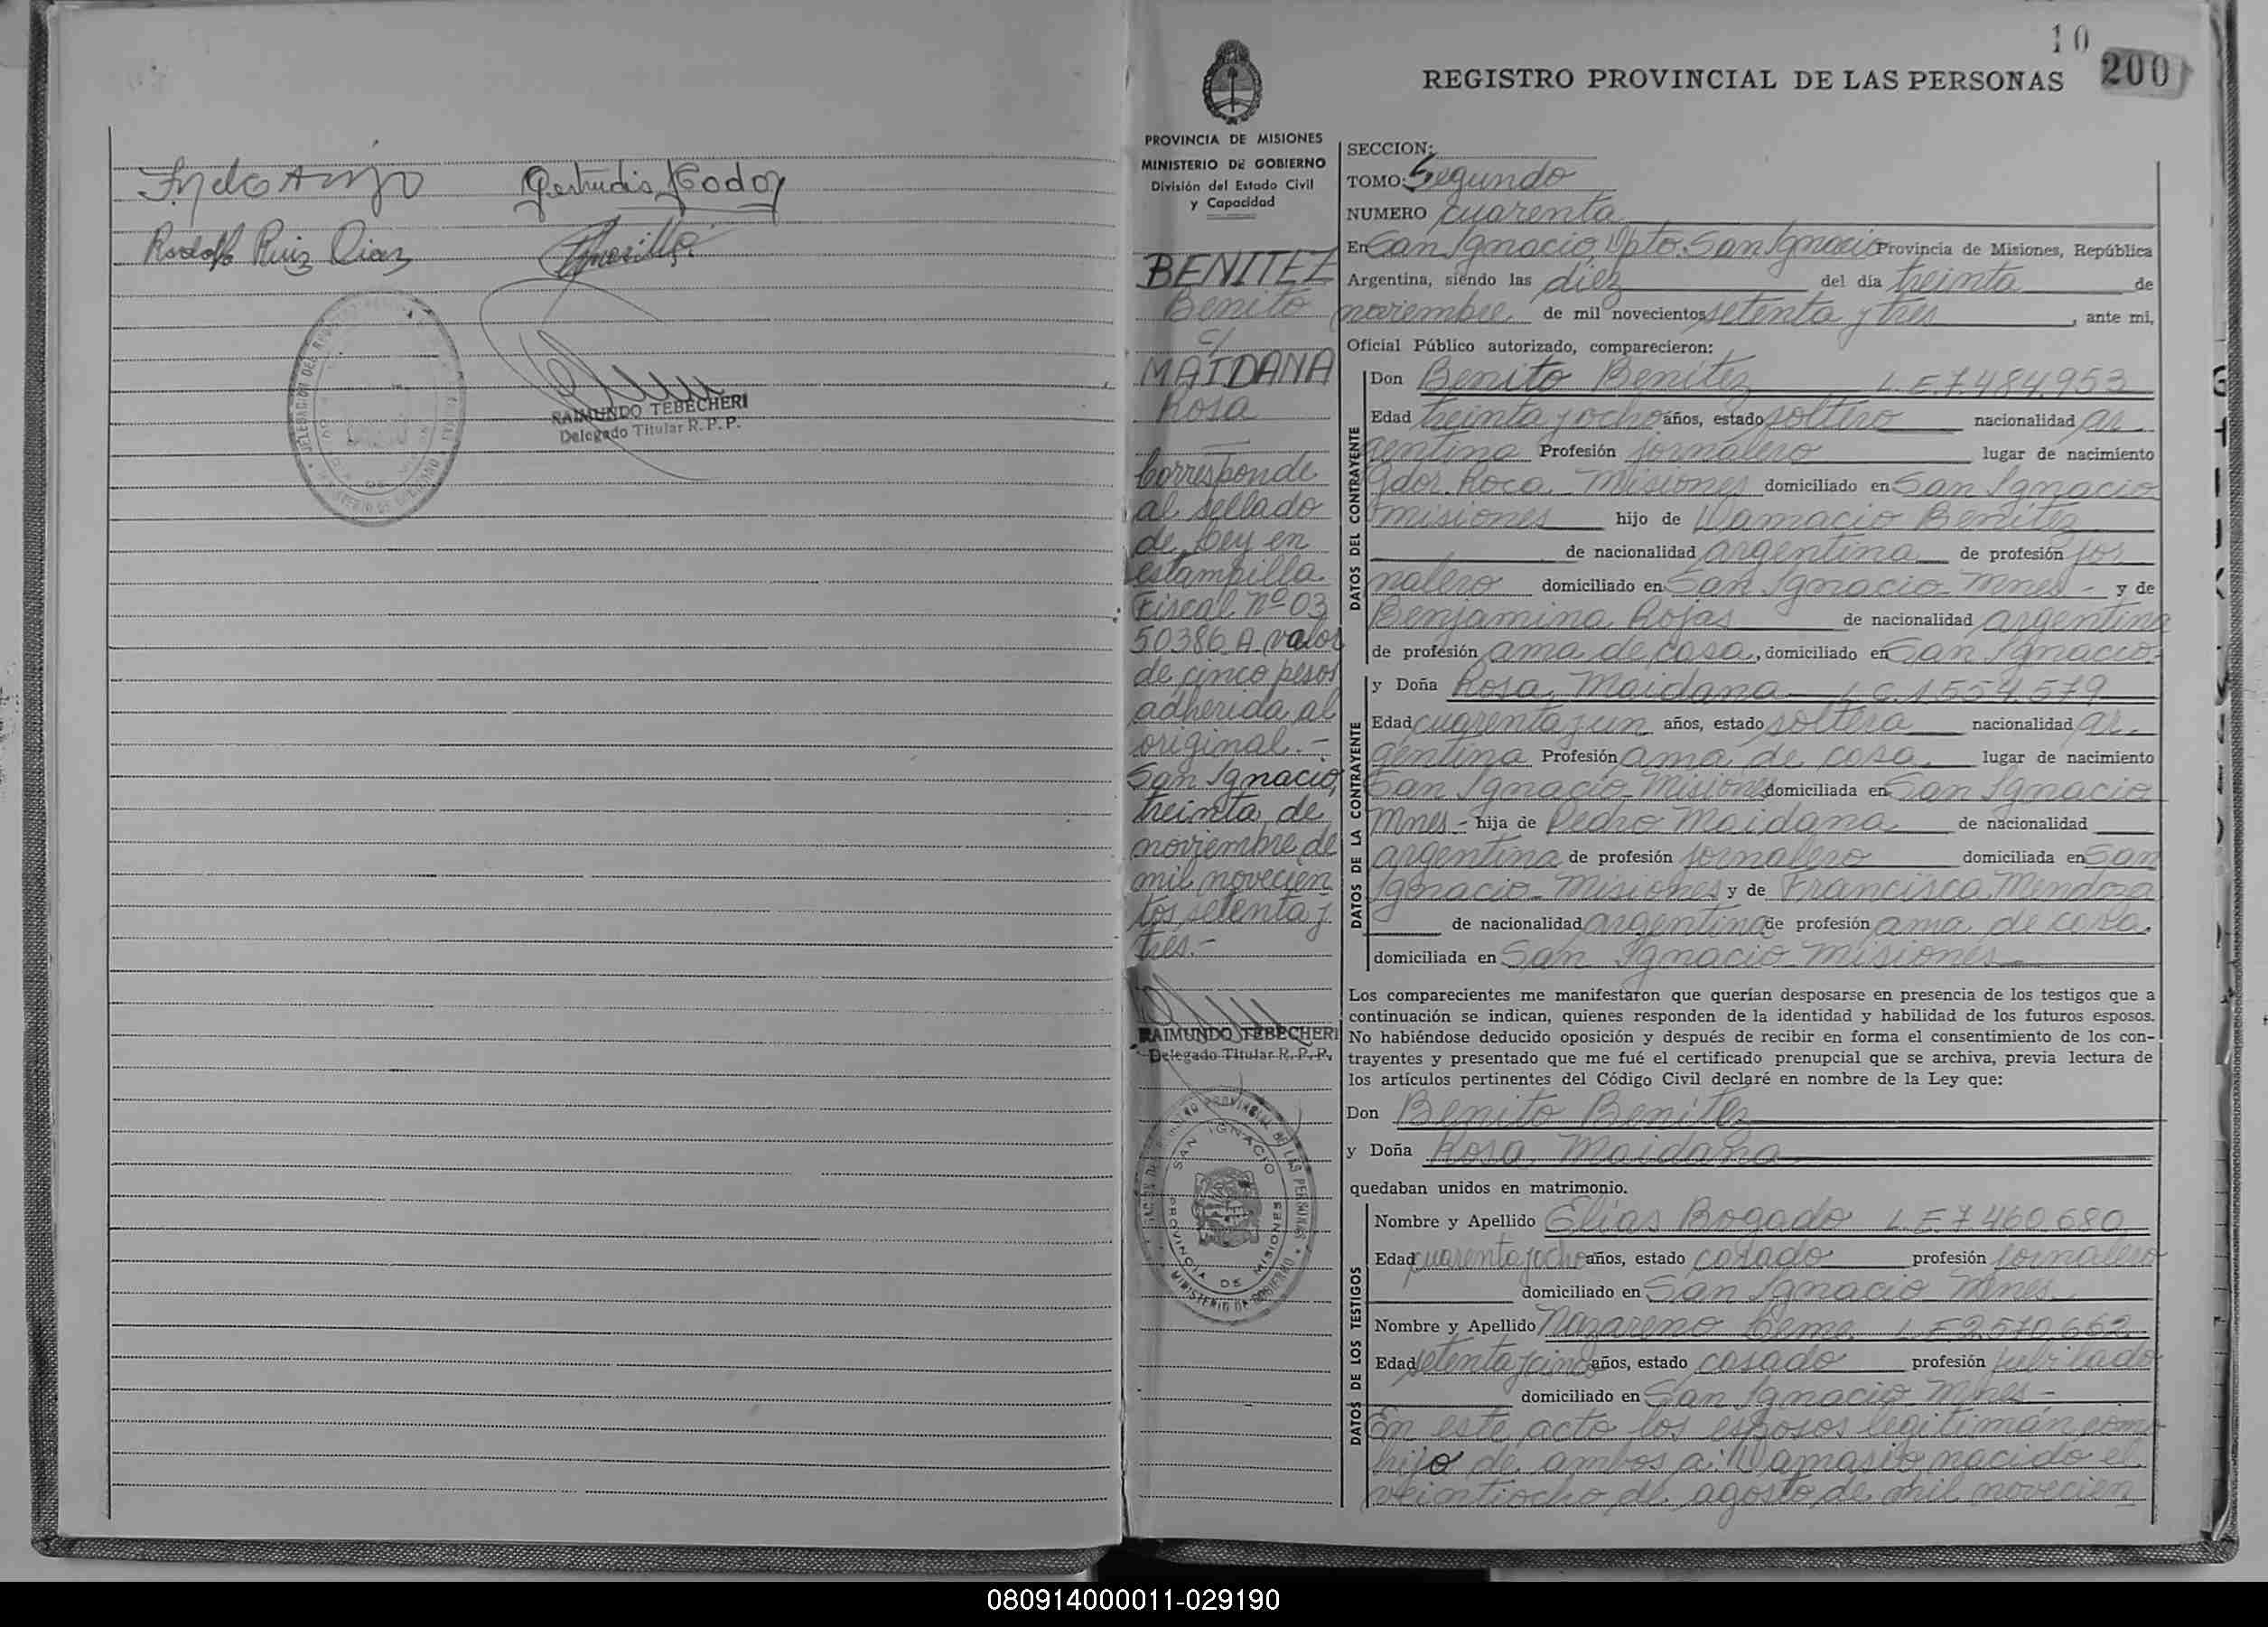 Gertrudis Godoy
Rodolfo Ruiz Diaz
RAIMUNDO TEBECHERI
Delegado Titular R. P. P.
10
200
REGISTRO PROVINCIAL DE LAS PERSONAS
PROVINCIA DE MISIONES
MINISTERIO DE GOBIERNO
División del Estado Civil
y Capacidad
BENITEZ
Benito
c/
MAIDANA
Rosa
Corresponde
al sellado
de Ley en
estampilla
Fiscal Nº 03
50386 A valor
de cinco pesos
adherida al
original.-
San Ignacio,
treinta de
noviembre de
mil novecien
tos setenta y
tres.-
RAIMUNDO TEBECHERI
Delegado Titular R. P. P.
SAN IGNACIO
PROVINCIA DE MISIONES
MINISTERIO DE GOBIERNO
SECCION:
TOMO: Segundo
NUMERO cuarenta
En San Ignacio, Dpto. San Ignacio Provincia de Misiones, República
Argentina, siendo las diez del día treinta de
noviembre de mil novecientos setenta y tres, ante mi,
Oficial Público autorizado, comparecieron:
DATOS DEL CONTRAYENTE
Don Benito Benitez L.E. 7.484.953
Edad treinta y ocho años, estado soltero nacionalidad ar
gentina Profesión jornalero lugar de nacimiento
Gdor. Roca Misiones domiciliado en San Ignacio
Misiones hijo de Damacio Benitez
de nacionalidad argentina de profesión jor
nalero domiciliado en San Ignacio Mnes - y de
Benjamina Rojas de nacionalidad argentina
de profesión ama de casa, domiciliado en San Ignacio.
DATOS DE LA CONTRAYENTE
y Doña Rosa Maidana L.C. 1.554.579
Edad cuarenta y un años, estado soltera nacionalidad ar.
gentina Profesión ama de casa. lugar de nacimiento
San Ignacio Misiones domiciliada en San Ignacio
Mnes.- hija de Pedro Maidana de nacionalidad
argentina de profesión jornalero domiciliada en San
Ignacio Misiones y de Francisca Mendoza
de nacionalidad argentina de profesión ama de casa.
domiciliada en San Ignacio Misiones
Los comparecientes me manifestaron que querían desposarse en presencia de los testigos que a
continuación se indican, quienes responden de la identidad y habilidad de los futuros esposos.
No habiéndose deducido oposición y después de recibir en forma el consentimiento de los con-
trayentes y presentado que me fué el certificado prenupcial que se archiva, previa lectura de
los artículos pertinentes del Código Civil declaré en nombre de la Ley que:
Don Benito Benitez
y Doña Rosa Maidana
quedaban unidos en matrimonio.
DATOS DE LOS TESTIGOS
Nombre y Apellido Elias Bogado L.E. 7.460.680
Edad cuarenta y ocho años, estado casado profesión jornalero
domiciliado en San Ignacio Mnes.
Nombre y Apellido Nazareno L.E. 2.570.662
Edad setenta y cinco años, estado casado profesión jubilado
domiciliado en San Ignacio Mnes -
En este acto los esposos legitiman como
hijo de ambos a: Damasio, nacido el
veintiocho de agosto de mil novecien
080914000011-029190